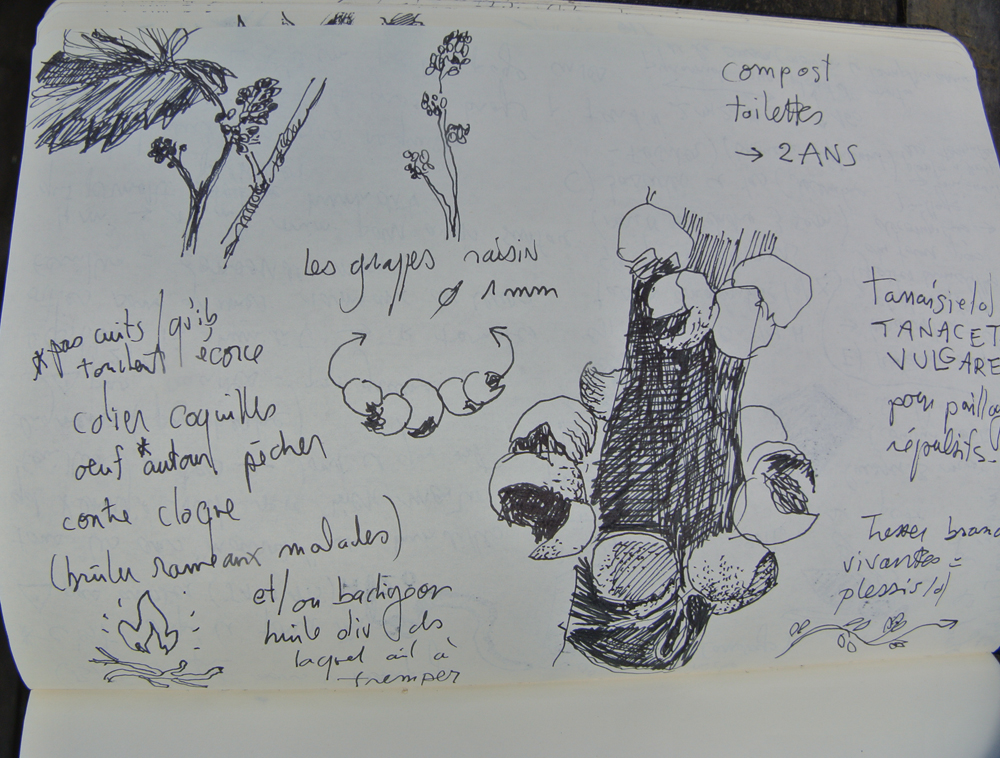 compost
toilettes
→ 2 ANS
Les grappes raisin
ø 1 mm
* pas cuits / qu'ils
touchent écorce
colier coquilles
oeuf * autour pêcher
contre cloque
(brûler rameaux malades)
et/ou badigeon
huile oliv ds
laquel ail à
tremper
Tanaisie
TANACET
VULGARE
pour paillag
répulsifs
Tresser branc
vivantes =
plessis